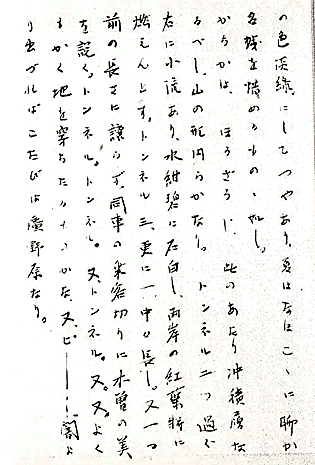 の色淡緑にしてつやあり、夏はなほこゝに聊か
名残を惜めるものゝ如し。
かるかは、ほうざうじ、此のあたり沖積層な
るべし、山の形円らかなり。トンネル二つ過ぐ
右に小流あり、水紺碧に石白し、両岸の紅葉將に
燃えんとす。トンネル三、更に一、中々長し。又一つ
前の長さに譲らず、同車の乗客切りに木曽の美
を説く。トンネル。トンネル。又、トンネル。又。又。よく
もかく地を穿ちたるものかな、又、ピ――――闇よ
り出づればこたびは廣野原なり。